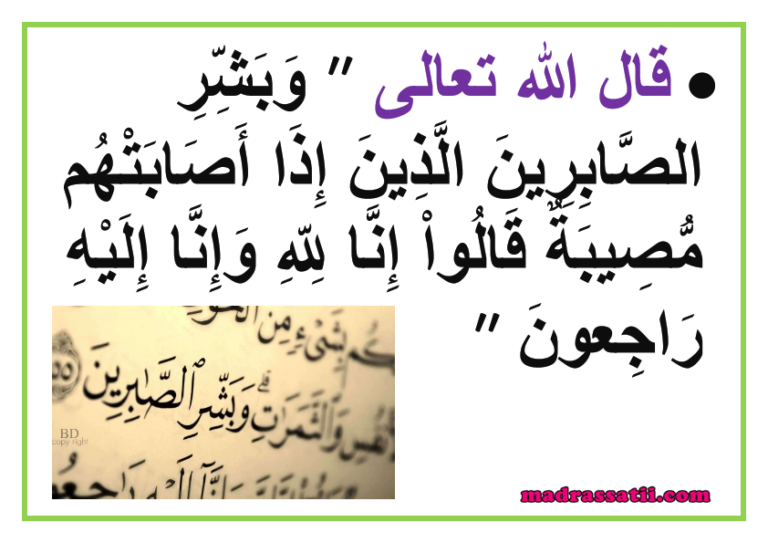 • قال الله تعالى " وَبَشِّرِ
الصَّابِرِينَ الَّذِينَ إِذَا أَصَابَتْهُم
مُّصِيبَةٌ قَالُواْ إِنَّا لِلّهِ وَإِنَّا إِلَيْهِ
رَاجِعونَ "
بِشَىْءٍ مِّنَ الْخَوْفِ
وَالثَّمَرَاتِ وَبَشِّرِ الصَّابِرِينَ
وَإِنَّا إِلَيْهِ رَاجِعُو
BD
copy right
madrassatii.com